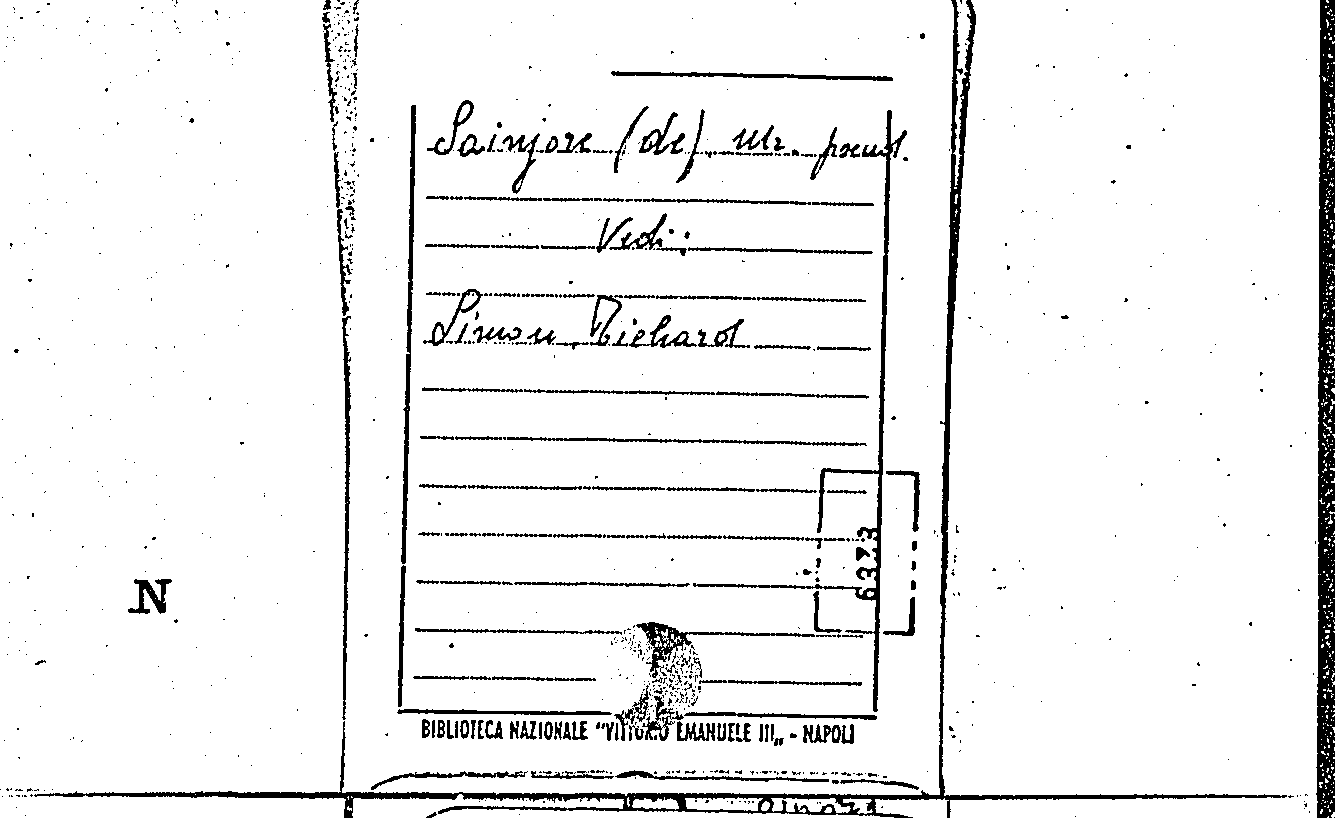 Sainjore (de) Mr. pseud.
Vedi:
Simon Richard
6373
N
BIBLIOTECA NAZIONALE "VITTORIO EMANUELE III„ - NAPOLI